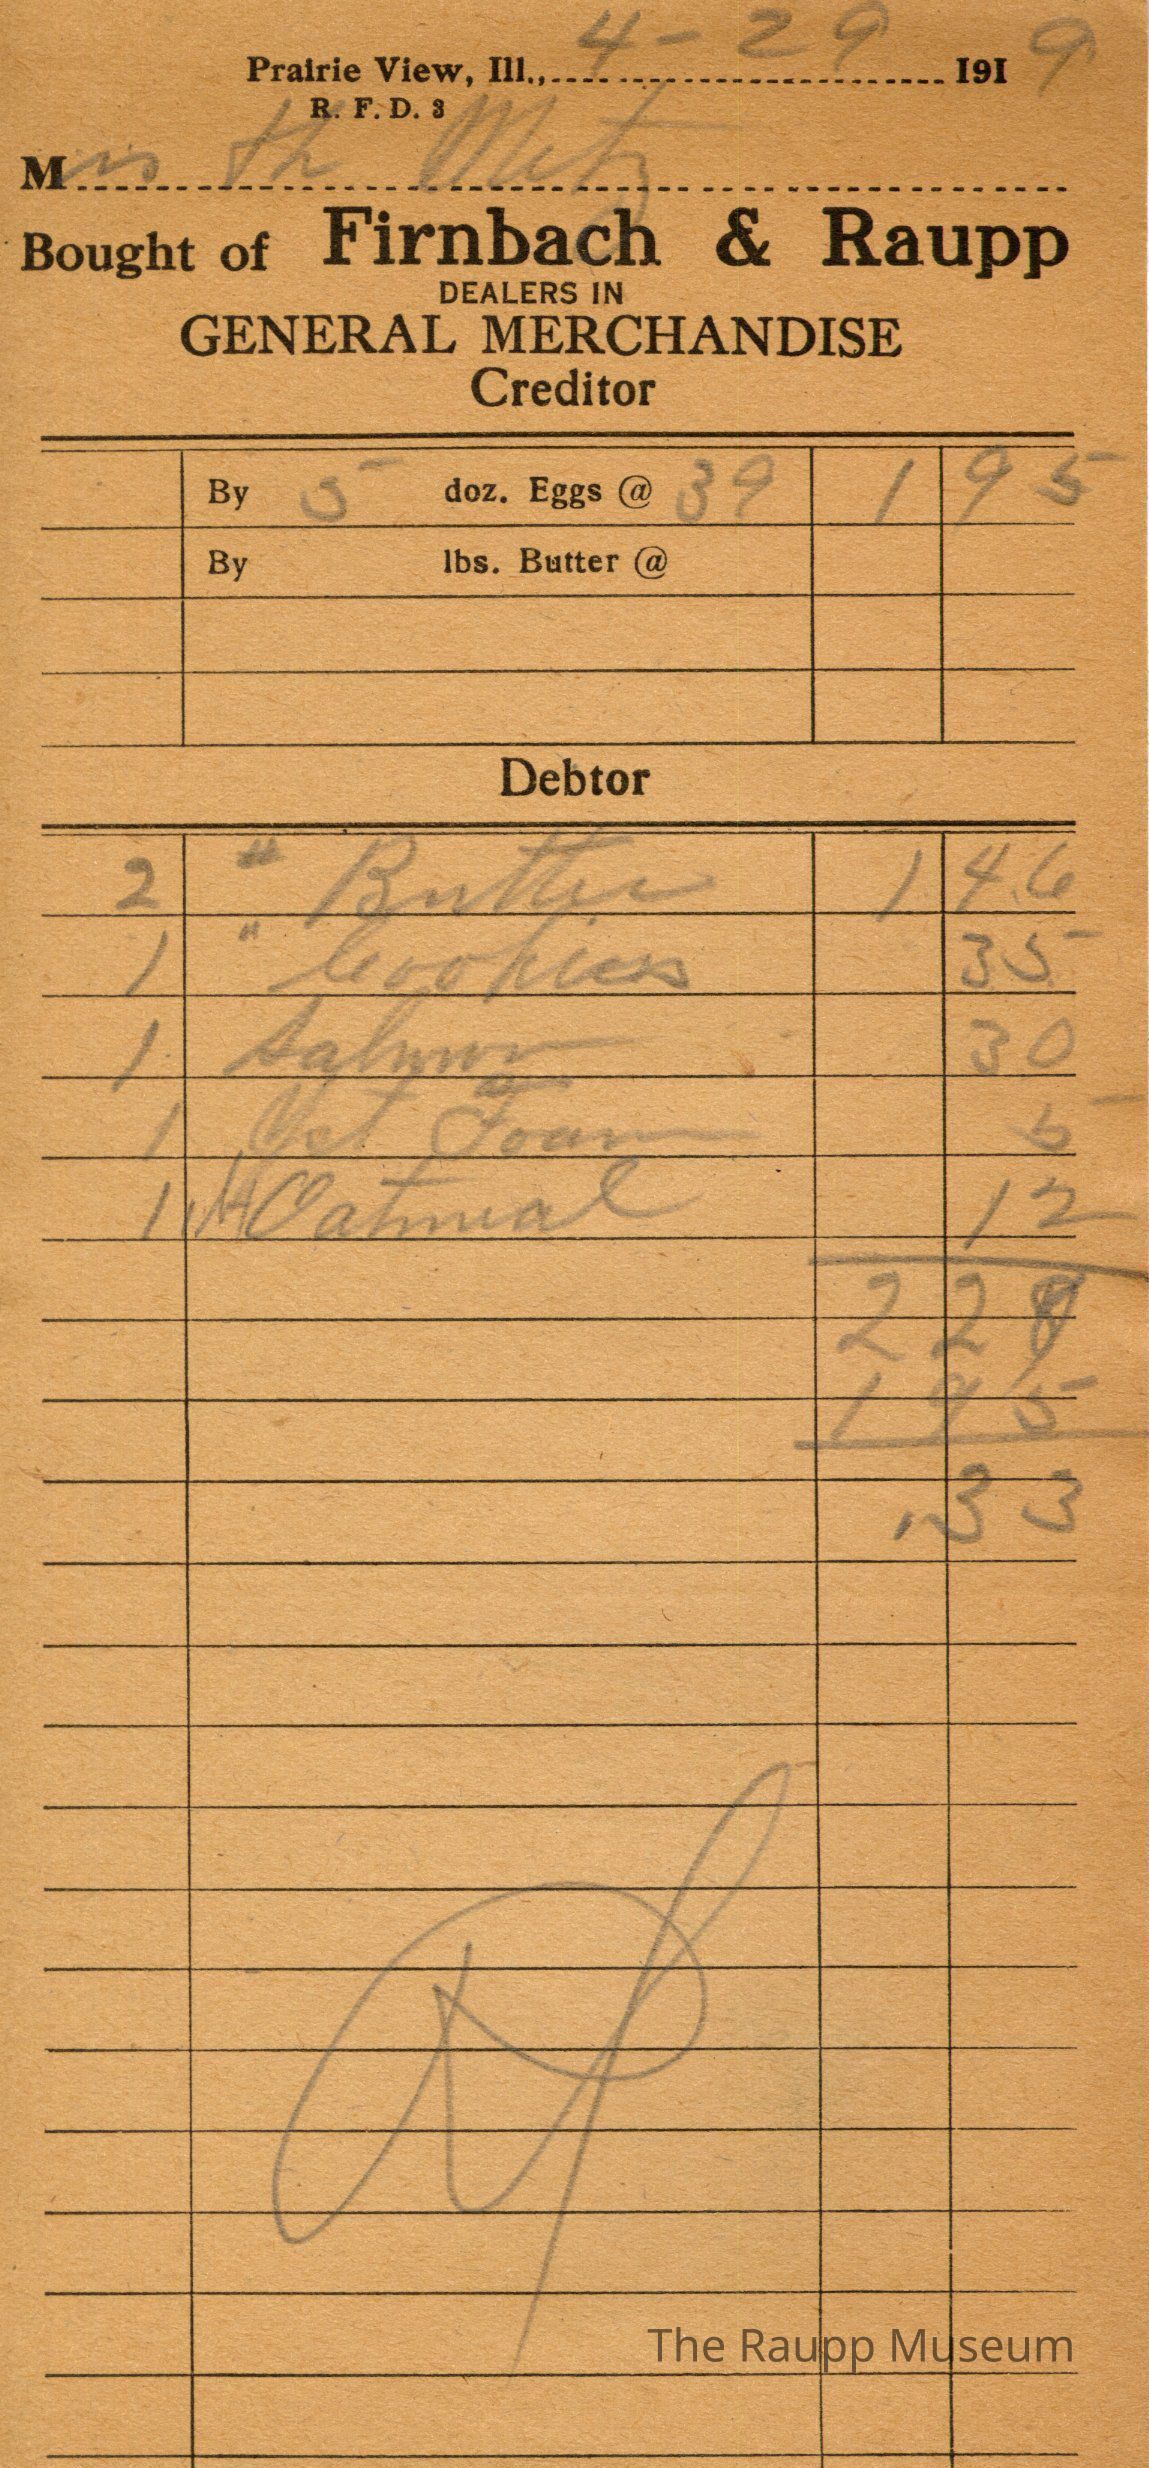 Prairie View, Ill., 4-29 1919
R. F. D. 3
M Metz
Bought of Firnbach & Raupp
DEALERS IN
GENERAL MERCHANDISE
Creditor
By 5 doz. Eggs @ 39 1 95
By lbs. Butter @
Debtor
2 # Butter 1 46
1 " Cookies 35
1 Salmon 30
1 Yst Foam 5
1 Oatmeal 12
2 28
1 95
.33
The Raupp Museum